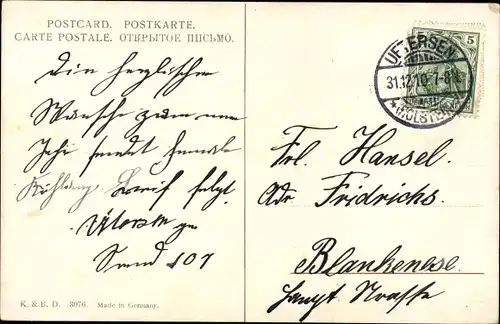 POSTCARD. POSTKARTE.
CARTE POSTALE. ОТКРЫТОЕ ПИСЬМО.
Die herzlichsten
Wünsche zum neuen
Jahr sendet
Brief folgt.
Sand 107
K. & B. D. 3076. Made in Germany.
5
UETERSEN
31.12.10. 7-8
*(HOLSTEIN)
Frl. Hansel.
Adr Fridrichs
Blankenese.
Haupt Straße